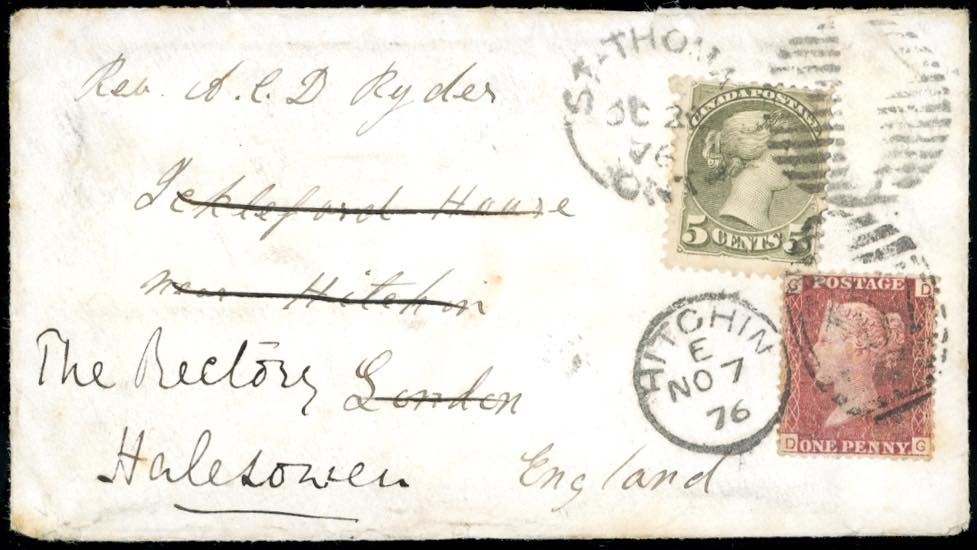 Rev. A. C. D Ryder
Ickleford House
near Hitchin
The Rectory London
Halesowen England
ST. THOMA
OC 2
76
ONT
CANADA POSTAGE
5 CENTS 5
HITCHIN
E
NO 7
76
G D
POSTAGE
D ONE PENNY G